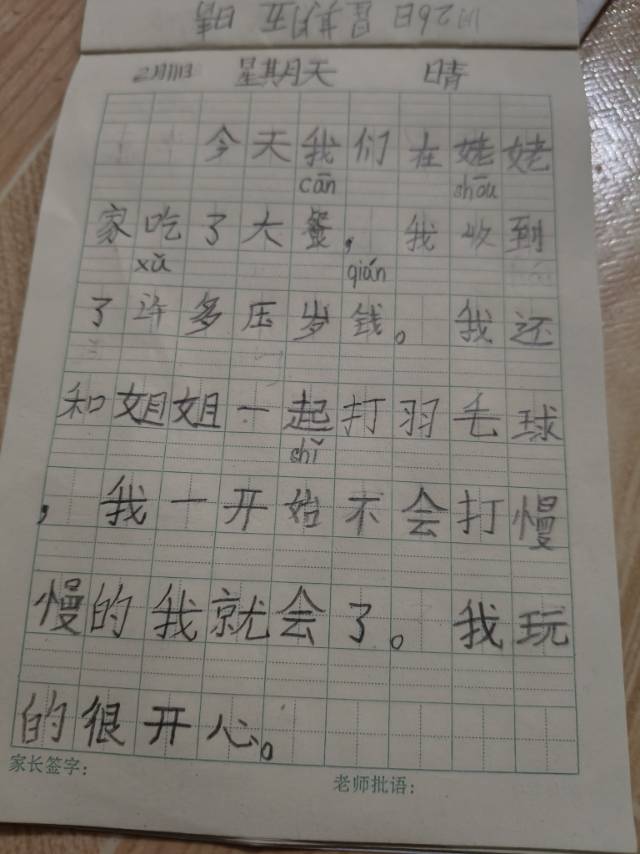 1月26日 星期五 晴
2月11日 星期天 晴
今天我们在姥姥
cān shōu
家吃了大餐，我收到
xǔ qián
了许多压岁钱。我还
和姐姐一起打羽毛球
shǐ
，我一开始不会打慢
慢的我就会了。我玩
的很开心。
家长签字：
老师批语：